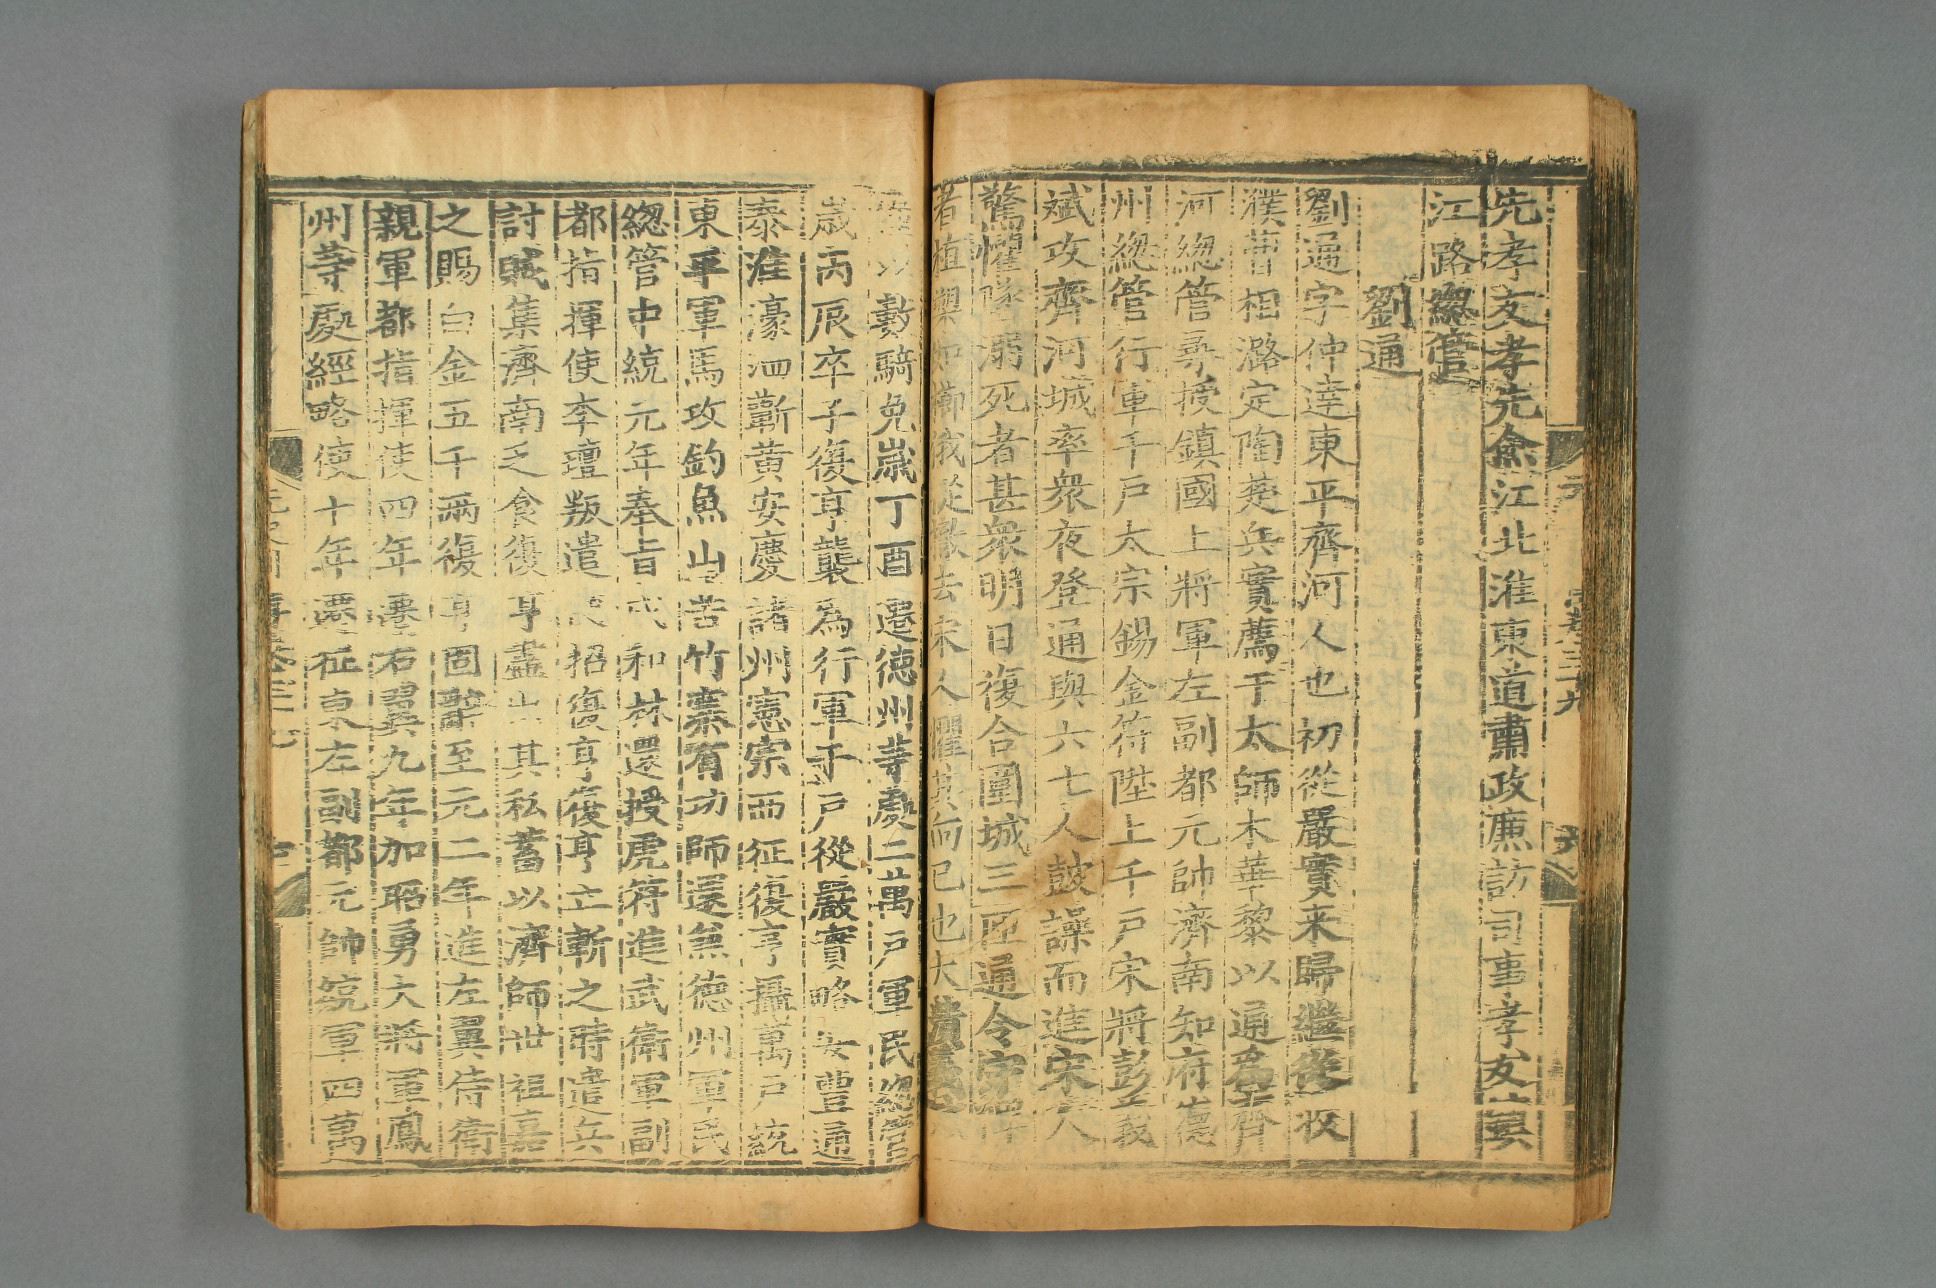 先孝友孝先僉江北淮東道肅政廉訪司事孝友山雲
江路緫管
劉通
劉通字仲達東平齊河人也初從嚴實来歸繼從收
濮曹相潞定陶楚兵實薦于太師木華黎以通為齊
河緫管尋授鎮國上將軍左副都元帥濟南知府德
州緫管行軍千戶太宗錫金符陞上千戶宋將彭義
斌攻齊河城率衆夜登通與六七人鼓譟而進宋人
驚懼墜溺死者甚衆明日復合圍城三匝通令守陴
者植槊如櫛俄從撤去宋人懼其向已也大
以數騎免歲丁酉遷德州等處二萬戶軍民緫管
歲丙辰卒子復亨襲為行軍千戶從嚴實略安豊通
泰淮濠泗蘄黄安慶諸州憲宗西征復亨攝萬戶統
東平軍馬攻釣魚山苦竹寨有功師還兼德州軍民
緫管中統元年奉旨戍和林還授虎符進武衛軍副
都指揮使李璮叛遣人招復亨復亨立斬之時遣兵
討賊集濟南乏食復亨盡出其私蓄以濟師世祖嘉
之賜白金五千兩復亨固辭至元二年進左翼侍衛
親軍都指揮使四年遷右翼九年加昭勇大將軍鳳
州等處經略使十年遷征東左副都元帥統軍四萬